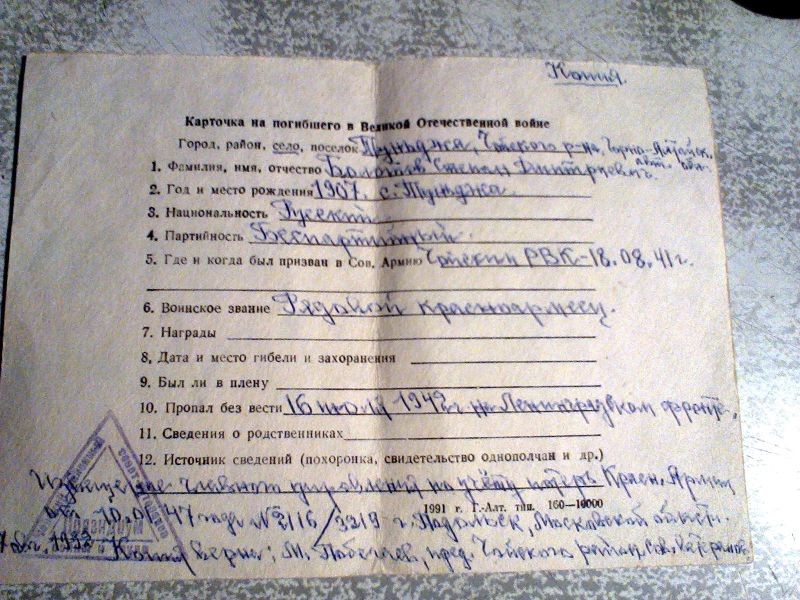 Копия.
Карточка на погибшего в Великой Отечественной войне
Город, район, село, поселок Тунжа, Чойского р-на, Горно-Алтайск.
авт. обл.
1. Фамилия, имя, отчество Болотов Степан Дмитриевич.
2. Год и место рождения 1907. с. Тунжа.
3. Национальность Русский
4. Партийность Беспартийный.
5. Где и когда был призван в Сов. Армию Чойским РВК-18.08.41 г.
6. Воинское звание Рядовой красноармеец.
7. Награды
8. Дата и место гибели и захоронения
9. Был ли в плену
10. Пропал без вести 16 июля 1942 г на Ленинградском фронте,
11. Сведения о родственниках
12. Источник сведений (похоронка, свидетельство однополчан и др.)
Извещение Главного управления по учёту потерь Красн. Армии
1991 г. Г.-Алт. тип. 160—10000
47 года № г. Подольск, Московской област.
1992 Копия верна: М. пред. Чойского район. Сов. ветеранов.